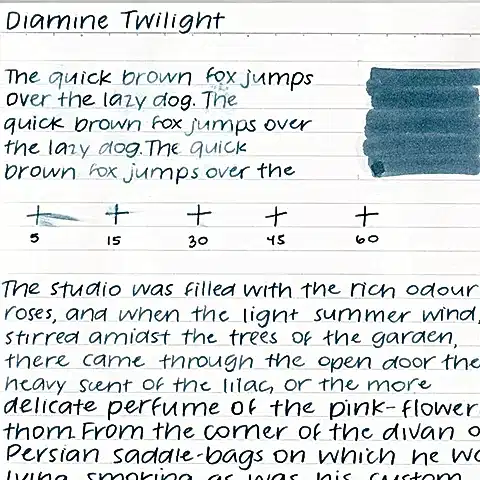 Diamine Twilight
The quick brown fox jumps
over the lazy dog. The
quick brown fox jumps over
the lazy dog. The quick
brown fox jumps over the
5 15 30 45 60
The studio was filled with the rich odour
roses, and when the light summer wind,
stirred amidst the trees of the garden,
there came through the open door the
heavy scent of the lilac, or the more
delicate perfume of the pink-flower
thorn. From the corner of the divan o
Persian saddle-bags on which he wa
lying, smoking, as was his custom